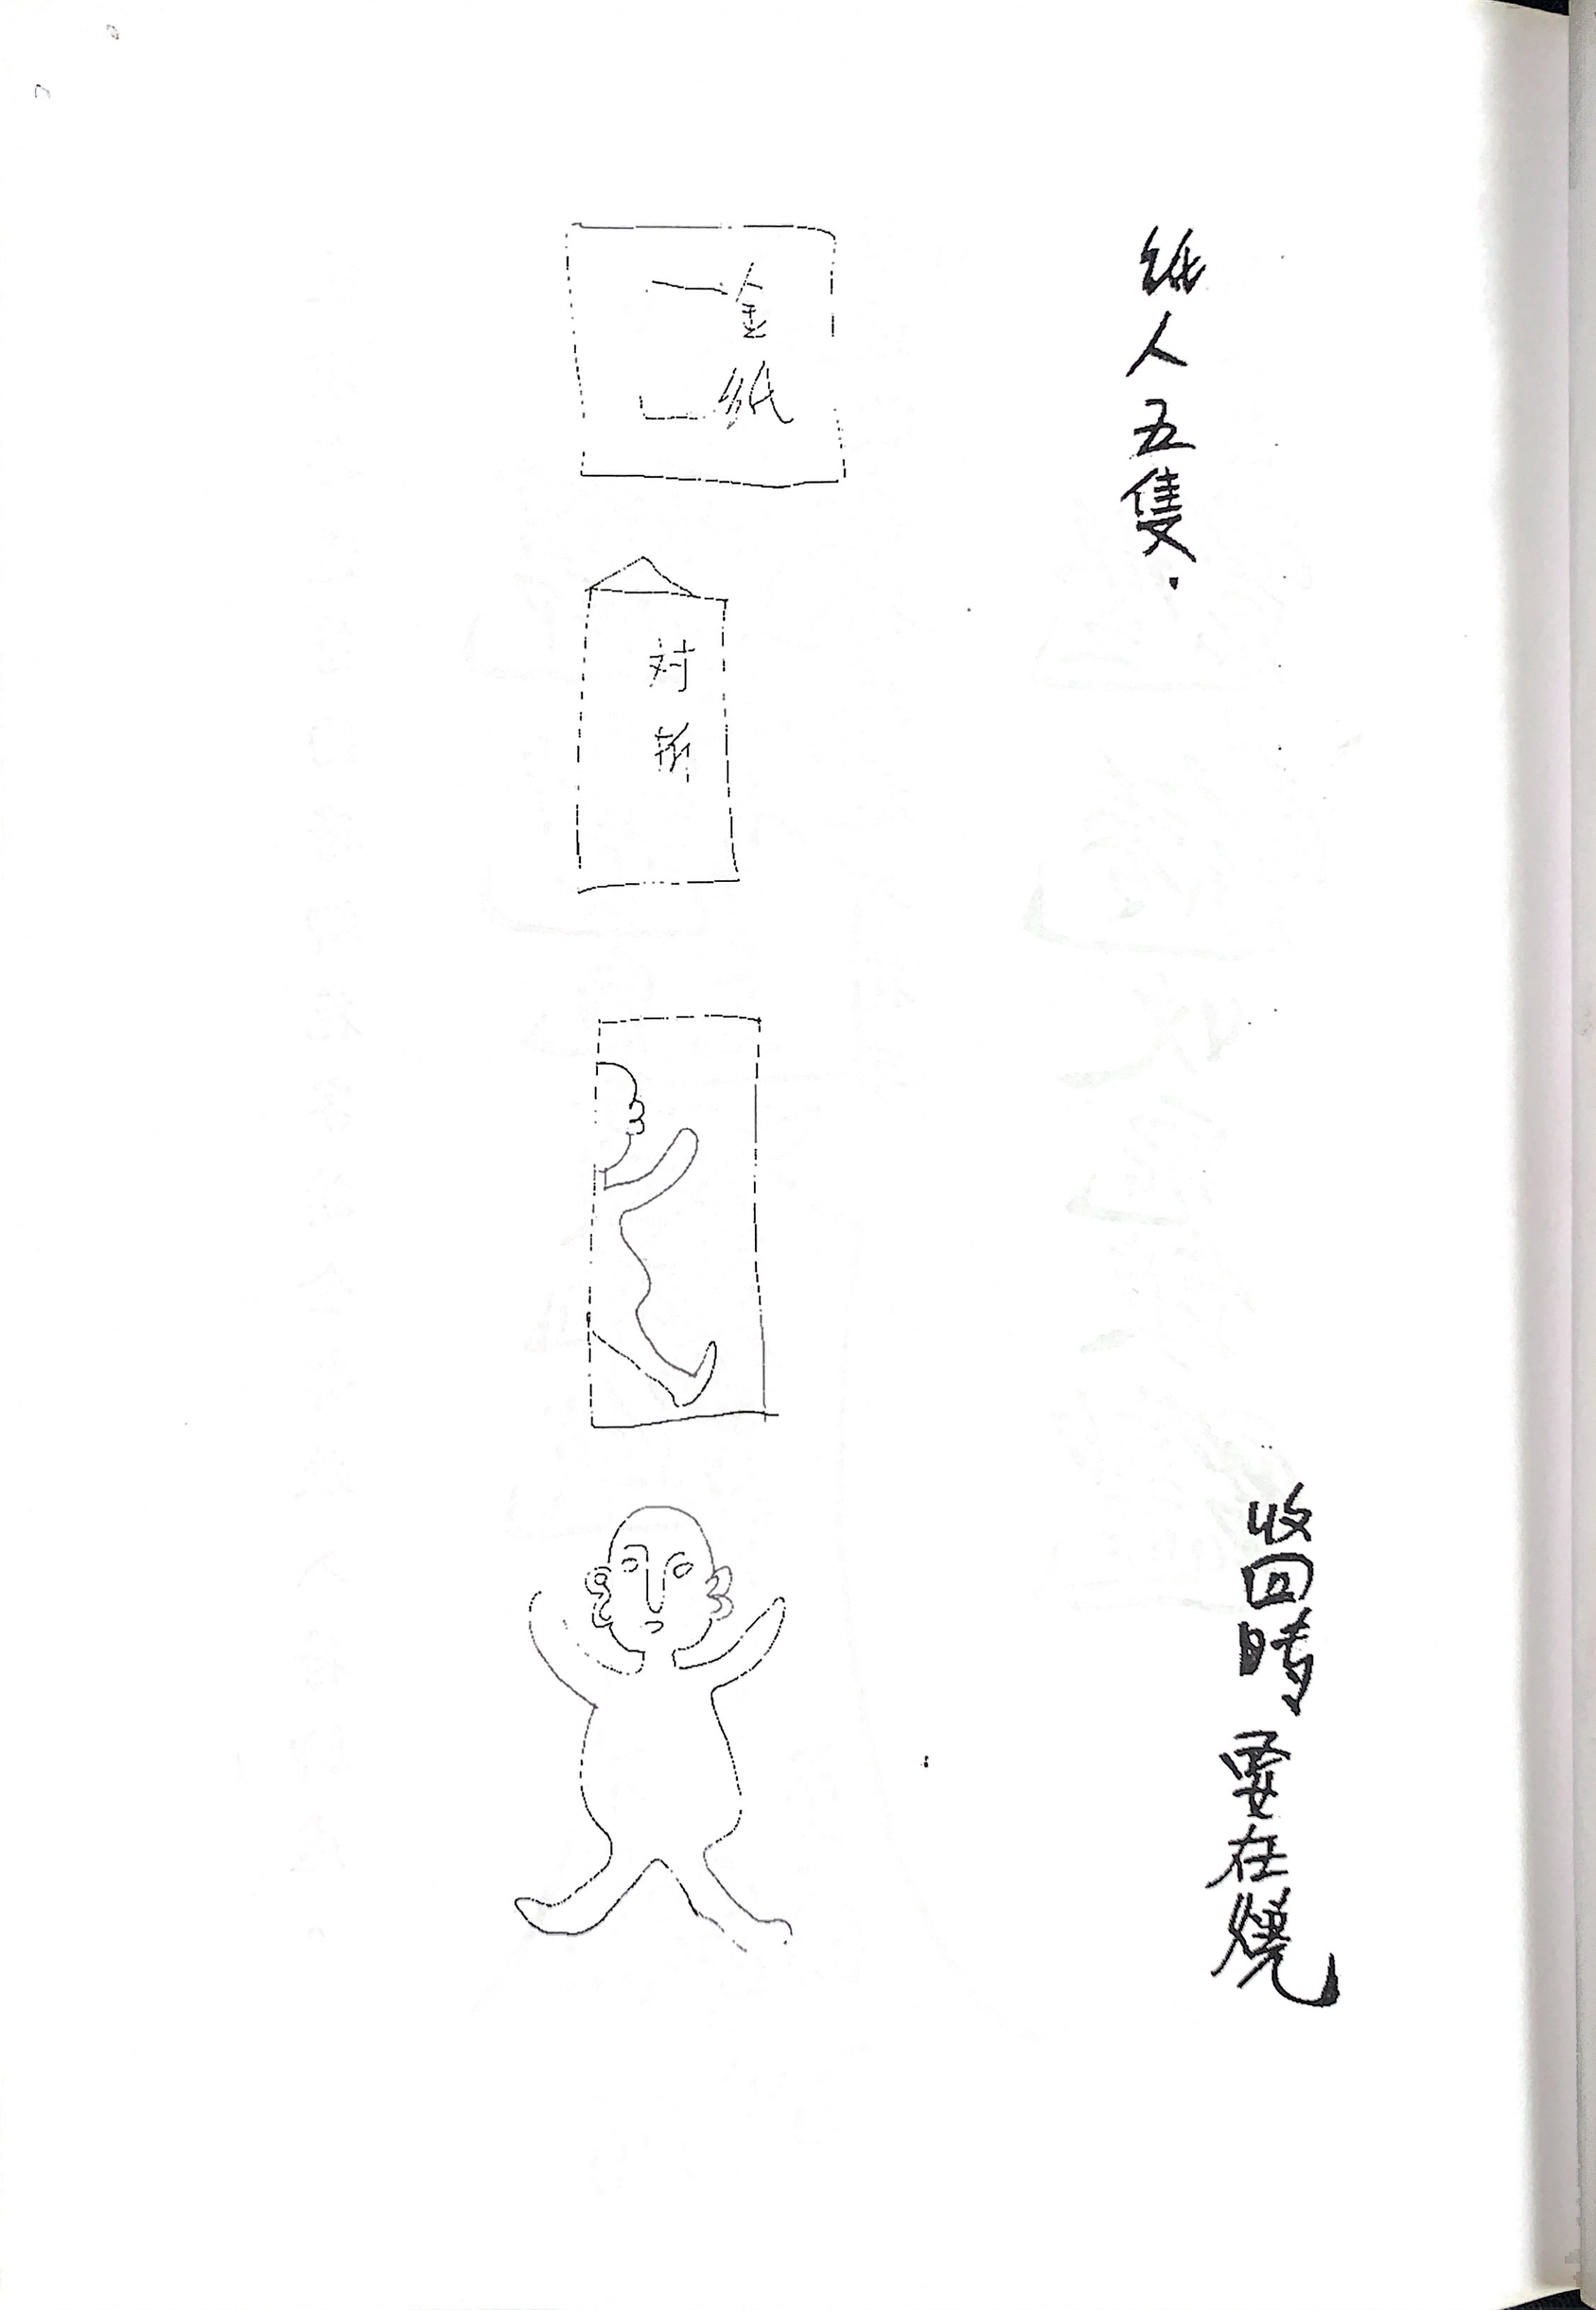 紙人五隻.
收回時要在燒
金紙
对折